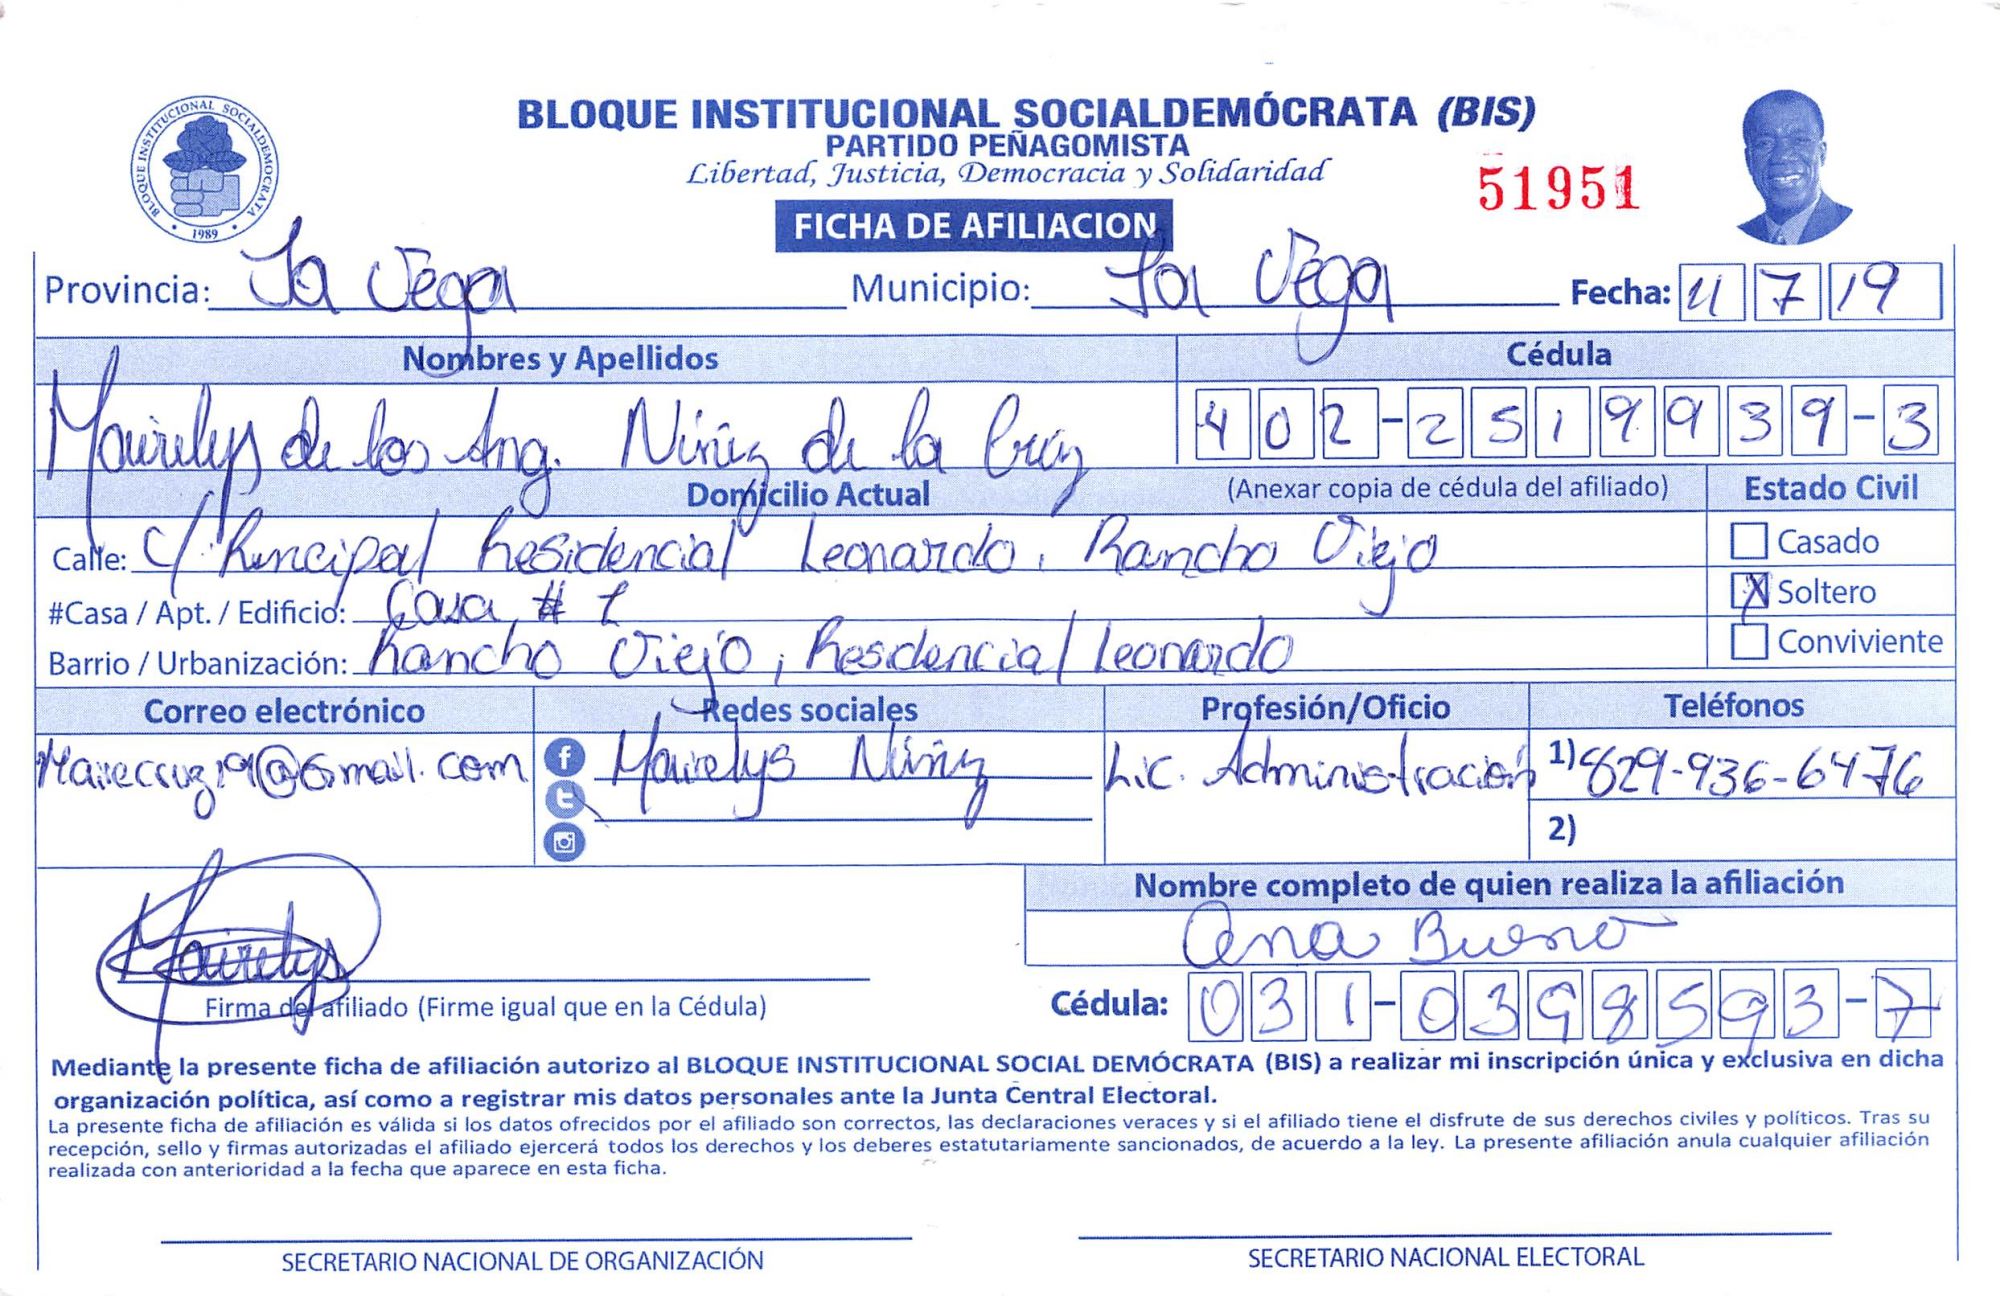 BLOQUE INSTITUCIONAL SOCIALDEMOCRATA
1989
BLOQUE INSTITUCIONAL SOCIALDEMÓCRATA (BIS)
PARTIDO PEÑAGOMISTA
Libertad, Justicia, Democracia y Solidaridad
51951
FICHA DE AFILIACION
Provincia: La Vega Municipio: La Vega Fecha: 11 7 19
Nombres y Apellidos Cédula
Mairelys de los Ang. Núñez de la Cruz 402-2519939-3
Domicilio Actual (Anexar copia de cédula del afiliado) Estado Civil
Calle: C/ Principal Residencial Leonardo, Rancho Viejo Casado
#Casa / Apt. / Edificio: Casa # 1 X Soltero
Barrio / Urbanización: Rancho Viejo, Residencial Leonardo Conviviente
Correo electrónico Redes sociales Profesión/Oficio Teléfonos
Mairecruz19@Gmail.com Mairelys Núñez Lic. Administración 1) 829-936-6476
2)
Nombre completo de quien realiza la afiliación
Ana Bueno
Mairelys
Firma del afiliado (Firme igual que en la Cédula) Cédula: 031-0398593-7
Mediante la presente ficha de afiliación autorizo al BLOQUE INSTITUCIONAL SOCIAL DEMÓCRATA (BIS) a realizar mi inscripción única y exclusiva en dicha
organización política, así como a registrar mis datos personales ante la Junta Central Electoral.
La presente ficha de afiliación es válida si los datos ofrecidos por el afiliado son correctos, las declaraciones veraces y si el afiliado tiene el disfrute de sus derechos civiles y políticos. Tras su
recepción, sello y firmas autorizadas el afiliado ejercerá todos los derechos y los deberes estatutariamente sancionados, de acuerdo a la ley. La presente afiliación anula cualquier afiliación
realizada con anterioridad a la fecha que aparece en esta ficha.
SECRETARIO NACIONAL DE ORGANIZACIÓN SECRETARIO NACIONAL ELECTORAL